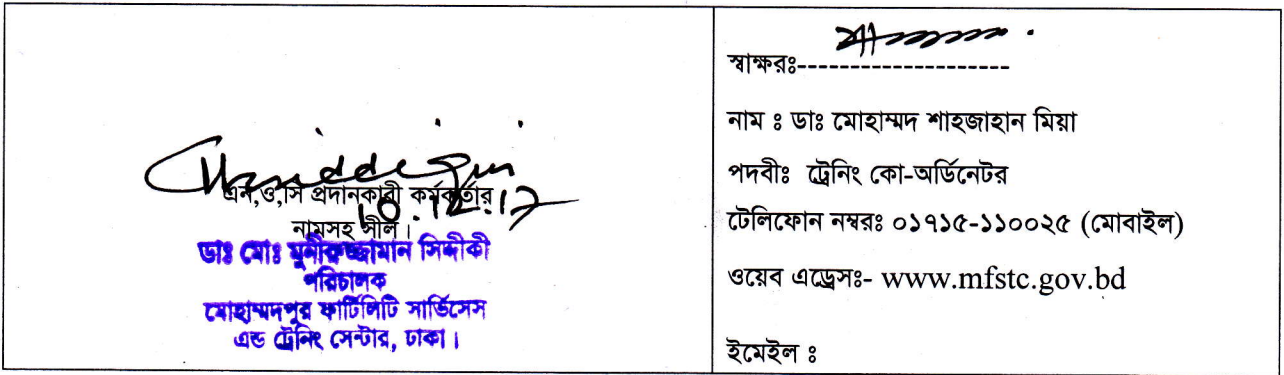 এন,ও,সি প্রদানকারী কর্মকর্তার
নামসহ সীল।
10.12.17
ডাঃ মোঃ মুনীরুজ্জামান সিদ্দীকী
পরিচালক
মোহাম্মদপুর ফার্টিলিটি সার্ভিসেস
এন্ড ট্রেনিং সেন্টার, ঢাকা।
স্বাক্ষরঃ--------------------
নাম ঃ ডাঃ মোহাম্মদ শাহজাহান মিয়া
পদবীঃ ট্রেনিং কো-অর্ডিনেটর
টেলিফোন নম্বরঃ ০১৭১৫-১১০০২৫ (মোবাইল)
ওয়েব এড্রেসঃ- www.mfstc.gov.bd
ইমেইল ঃ